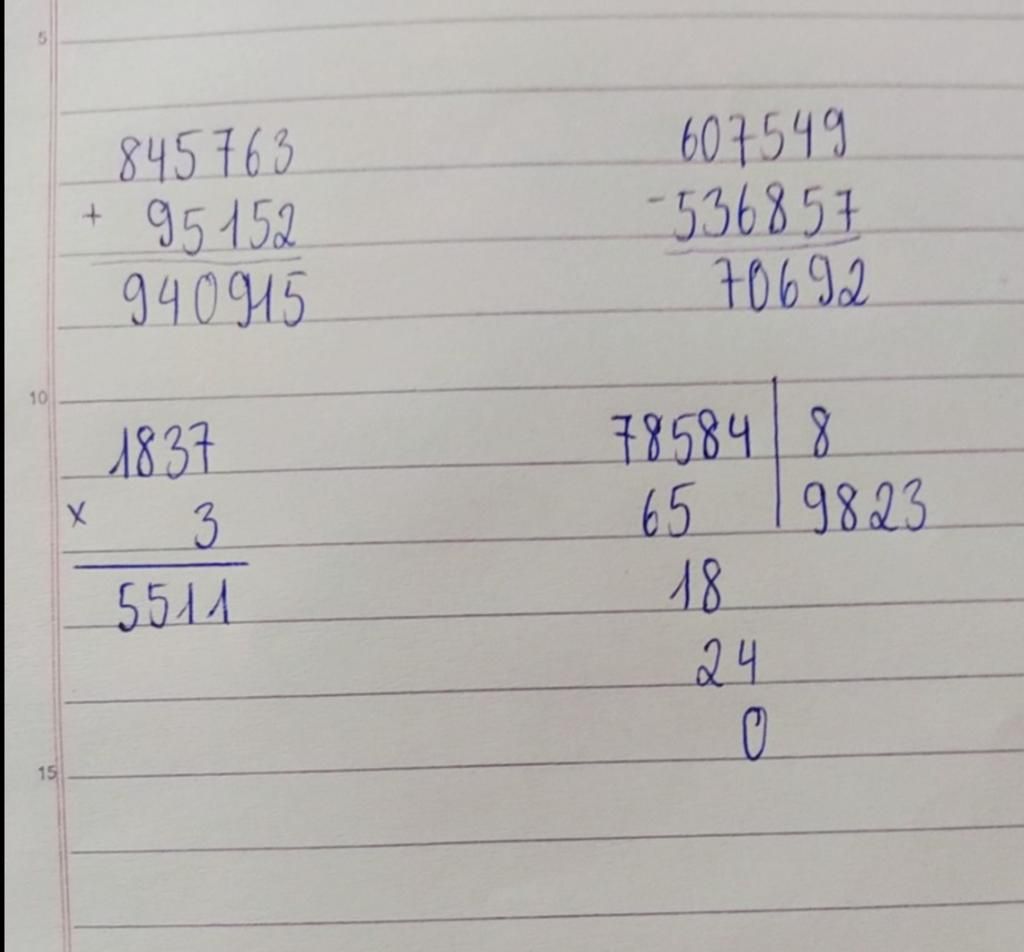 5
845763
+ 95152
940915
607549
-536857
70692
10
1837
x 3
5511
78584 | 8
65 9823
18
24
0
15